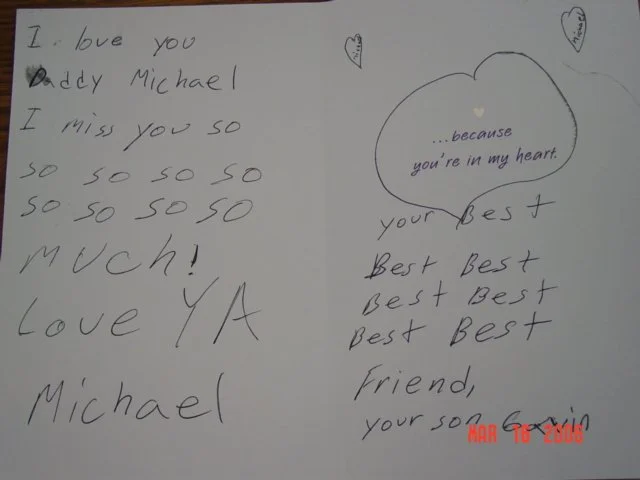 I love you
Daddy Michael
I miss you so
so so so so
so so so so
much!
Love YA
Michael
Michael
Michael
...because
you're in my heart.
your Best
Best Best
Best Best
Best Best
Friend,
your son Gavin
MAR 16